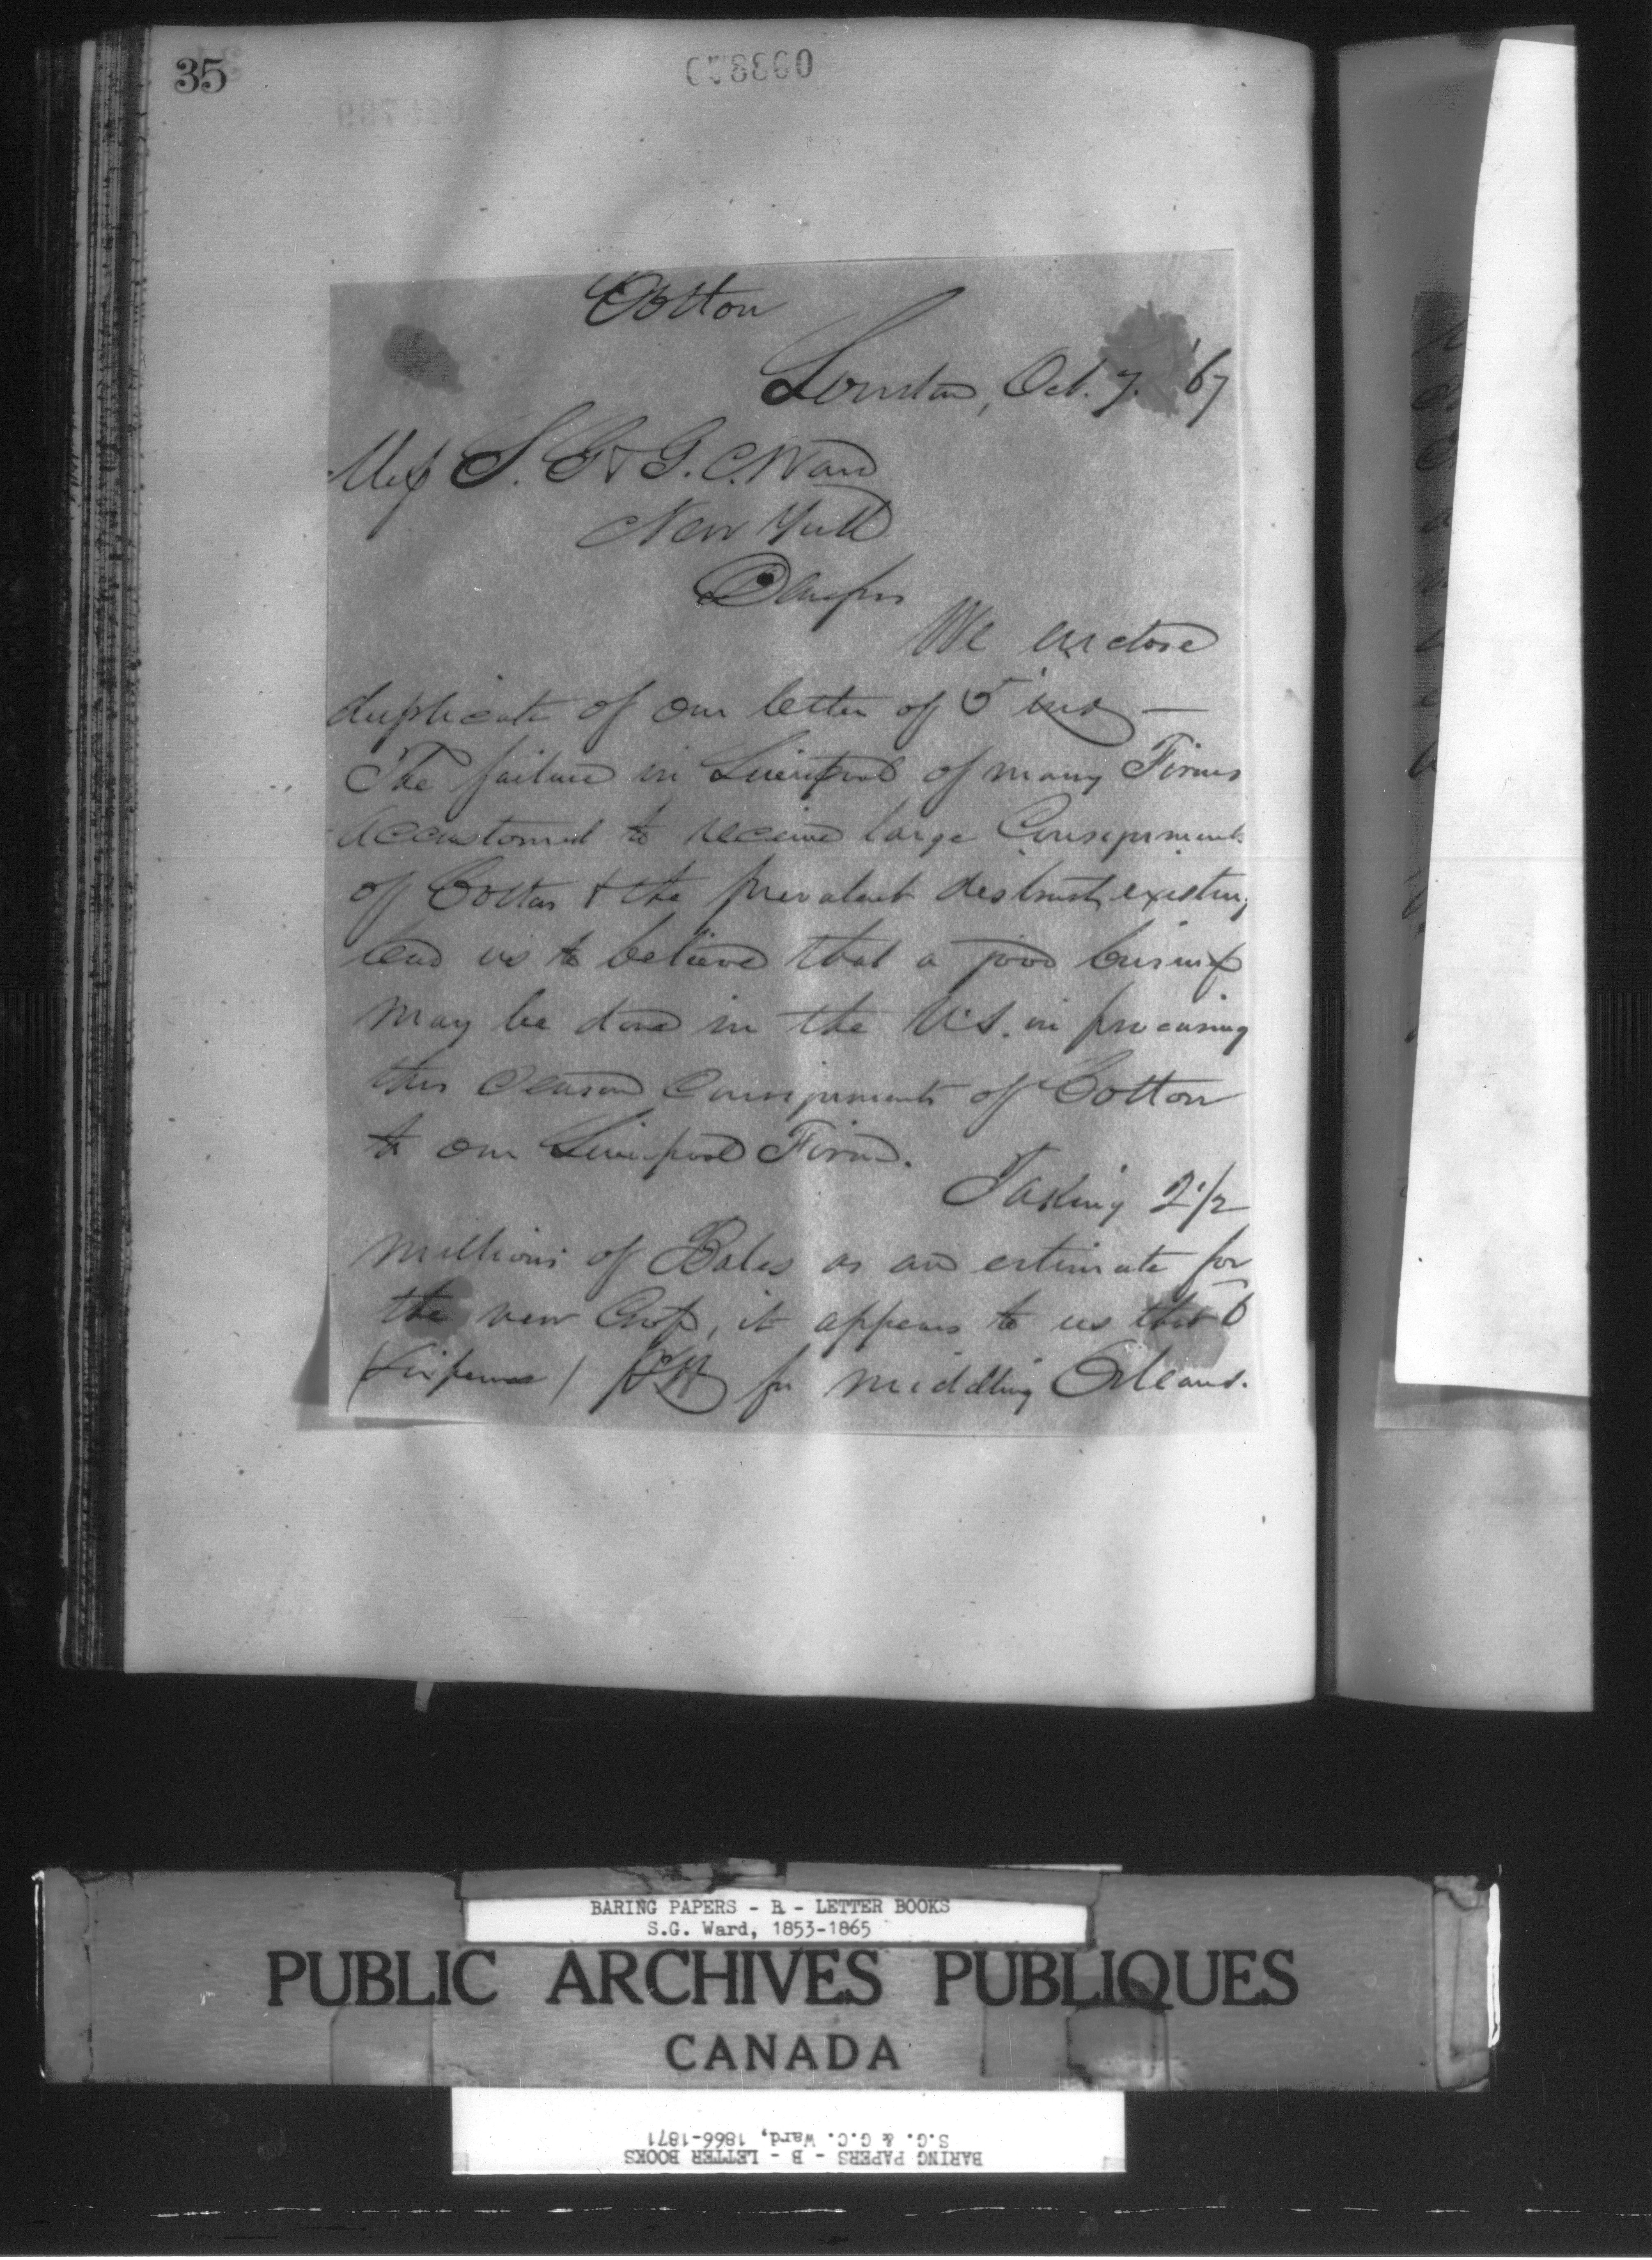 35
Cotton
London, Oct. 7. '67
Mess S. G & G. C. Ward
New York
Dear Sirs
We enclose
duplicate of our letter of 5 inst —
The failure in Liverpool of many Firms
accustomed to receive large Consignments
of Cotton & the prevalent distrust existing
lead us to believe that a good business
may be done in the U.S. in procuring
this Season Consignments of Cotton
to our Liverpool Firm.
Taking 2 1/2
millions of Bales as an estimate for
the new Crop, it appears to us that 6
(Sixpence) for middling Orleans.
BARING PAPERS - B - LETTER BOOKS
S.G. Ward, 1853-1865
PUBLIC ARCHIVES PUBLIQUES
CANADA
BARING PAPERS - B - LETTER BOOKS
S.G. & G.C. Ward, 1866-1871